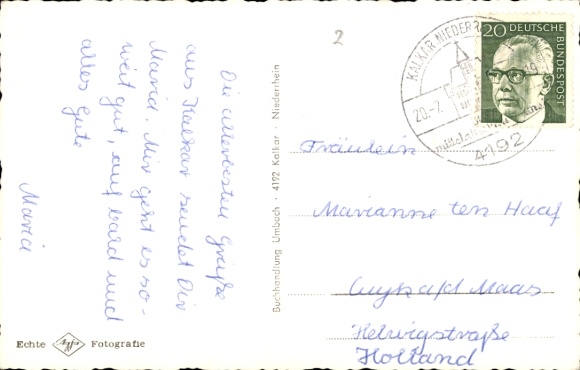 Die allerbesten Grüße
aus Kalkar sendet Dir
Maria. Mir geht es so-
weit gut, auf bald und
alles Gute
Maria
Echte Agfa Fotografie
Buchhandlung Umbach · 4192 Kalkar · Niederrhein
2
KALKAR NIEDERR
20.-7.
4192
20 DEUTSCHE
BUNDESPOST
Fräulein
Marianne ten Haaf
Cuyk a/d Maas
Helwigstraße
Holland